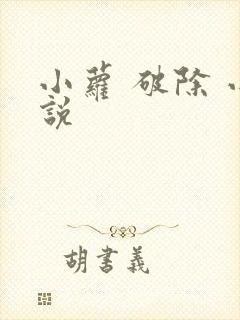 小蘿 破除 小
說
胡書義